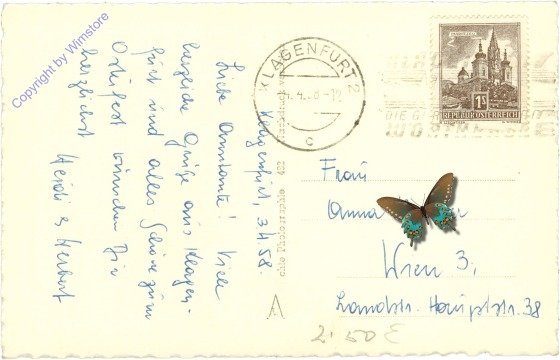 Copyright by Wimstore
Klagenfurt, 3.4.58.
Liebe Anntante! Viele
herzliche Grüße aus Klagen-
furt und alles Schöne zum
Osterfest wünschen Dir
herzlichst
Heidi & Herbert
KLAGENFURT 2
c
1S
REPUBLIK ÖSTERREICH
chte Photographie 422
A
Frau
Anna
Wien 3.
Landstr. Hauptstr. 38
2.50 €